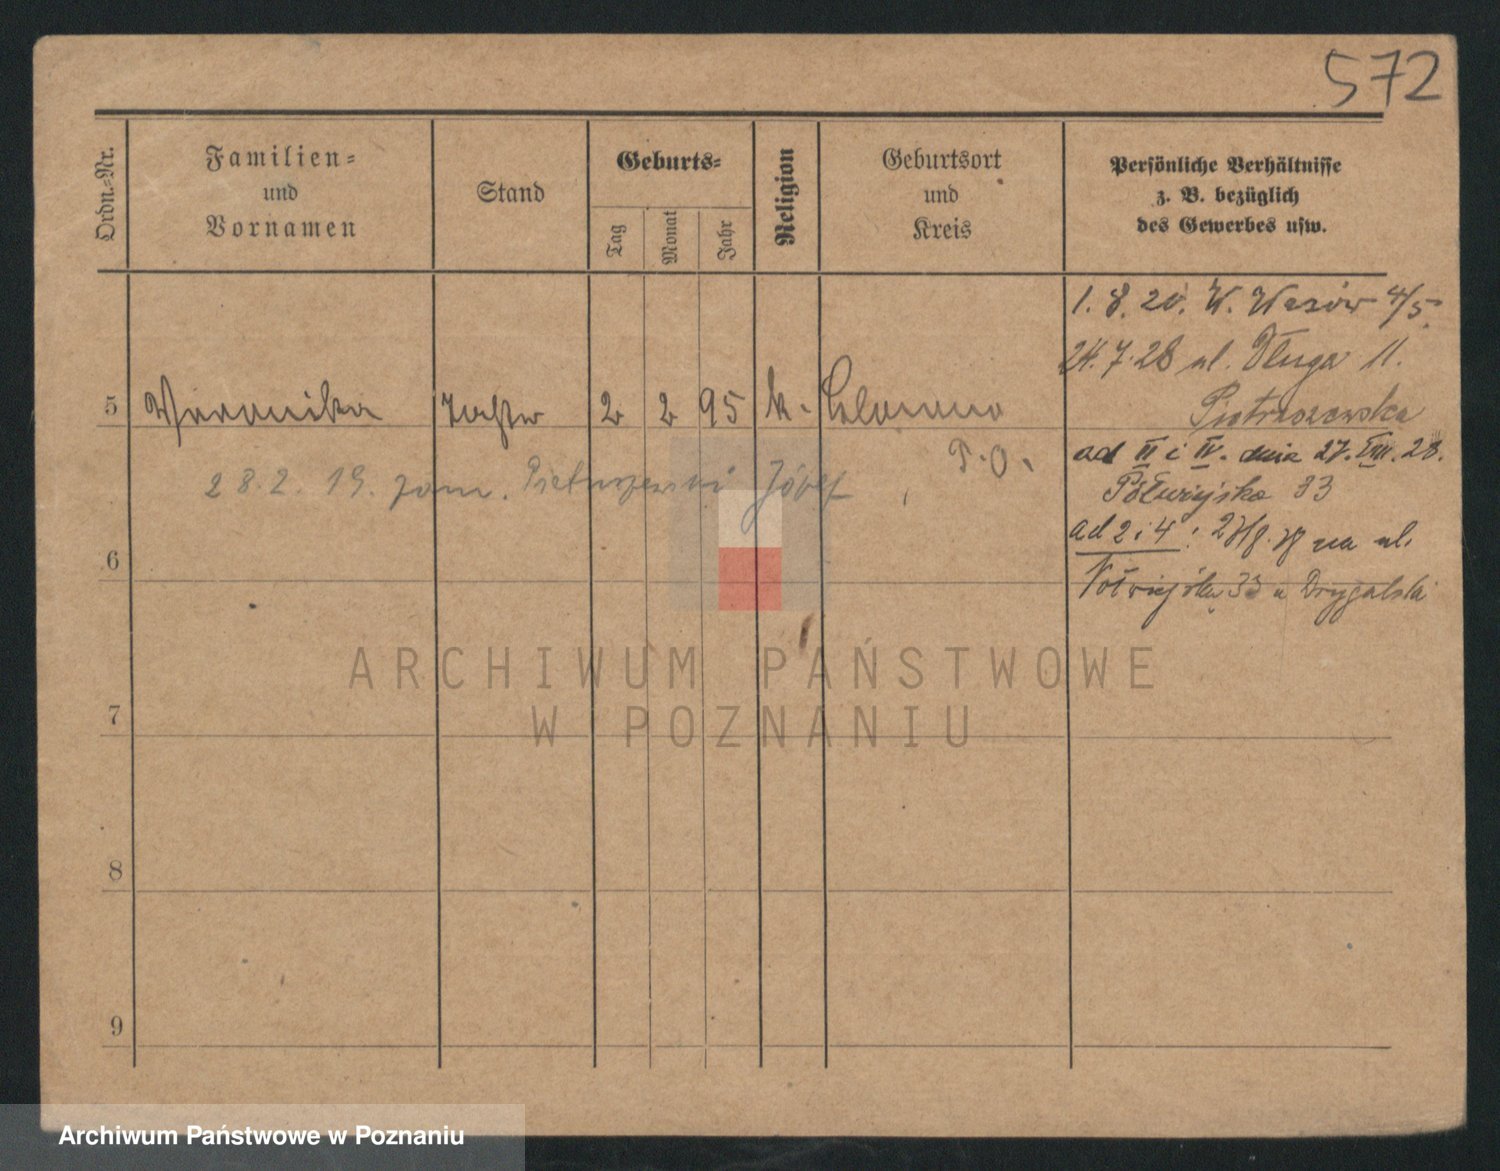 572
Ordn.-Nr.
Familien-
und
Vornamen
Stand
Geburts-
Tag
Monat
Jahr
Religion
Geburtsort
und
Kreis
Persönliche Verhältnisse
z. B. bezüglich
des Gewerbes usw.
1. 8. 20. W. 4/5
24.7.28 ul. Długa 11.
Piotraszewska
5 Veronika Tochter 2 2 95 k.
P.O.
ad III i IV. dnia 27.VIII.28.
Półwiejska 33
28.2.19. zam. Józef
ad 2 i 4: na ul.
Półwiejska 33 u Drygalski
6
ARCHIWUM PAŃSTWOWE
W POZNANIU
7
8
9
Archiwum Państwowe w Poznaniu